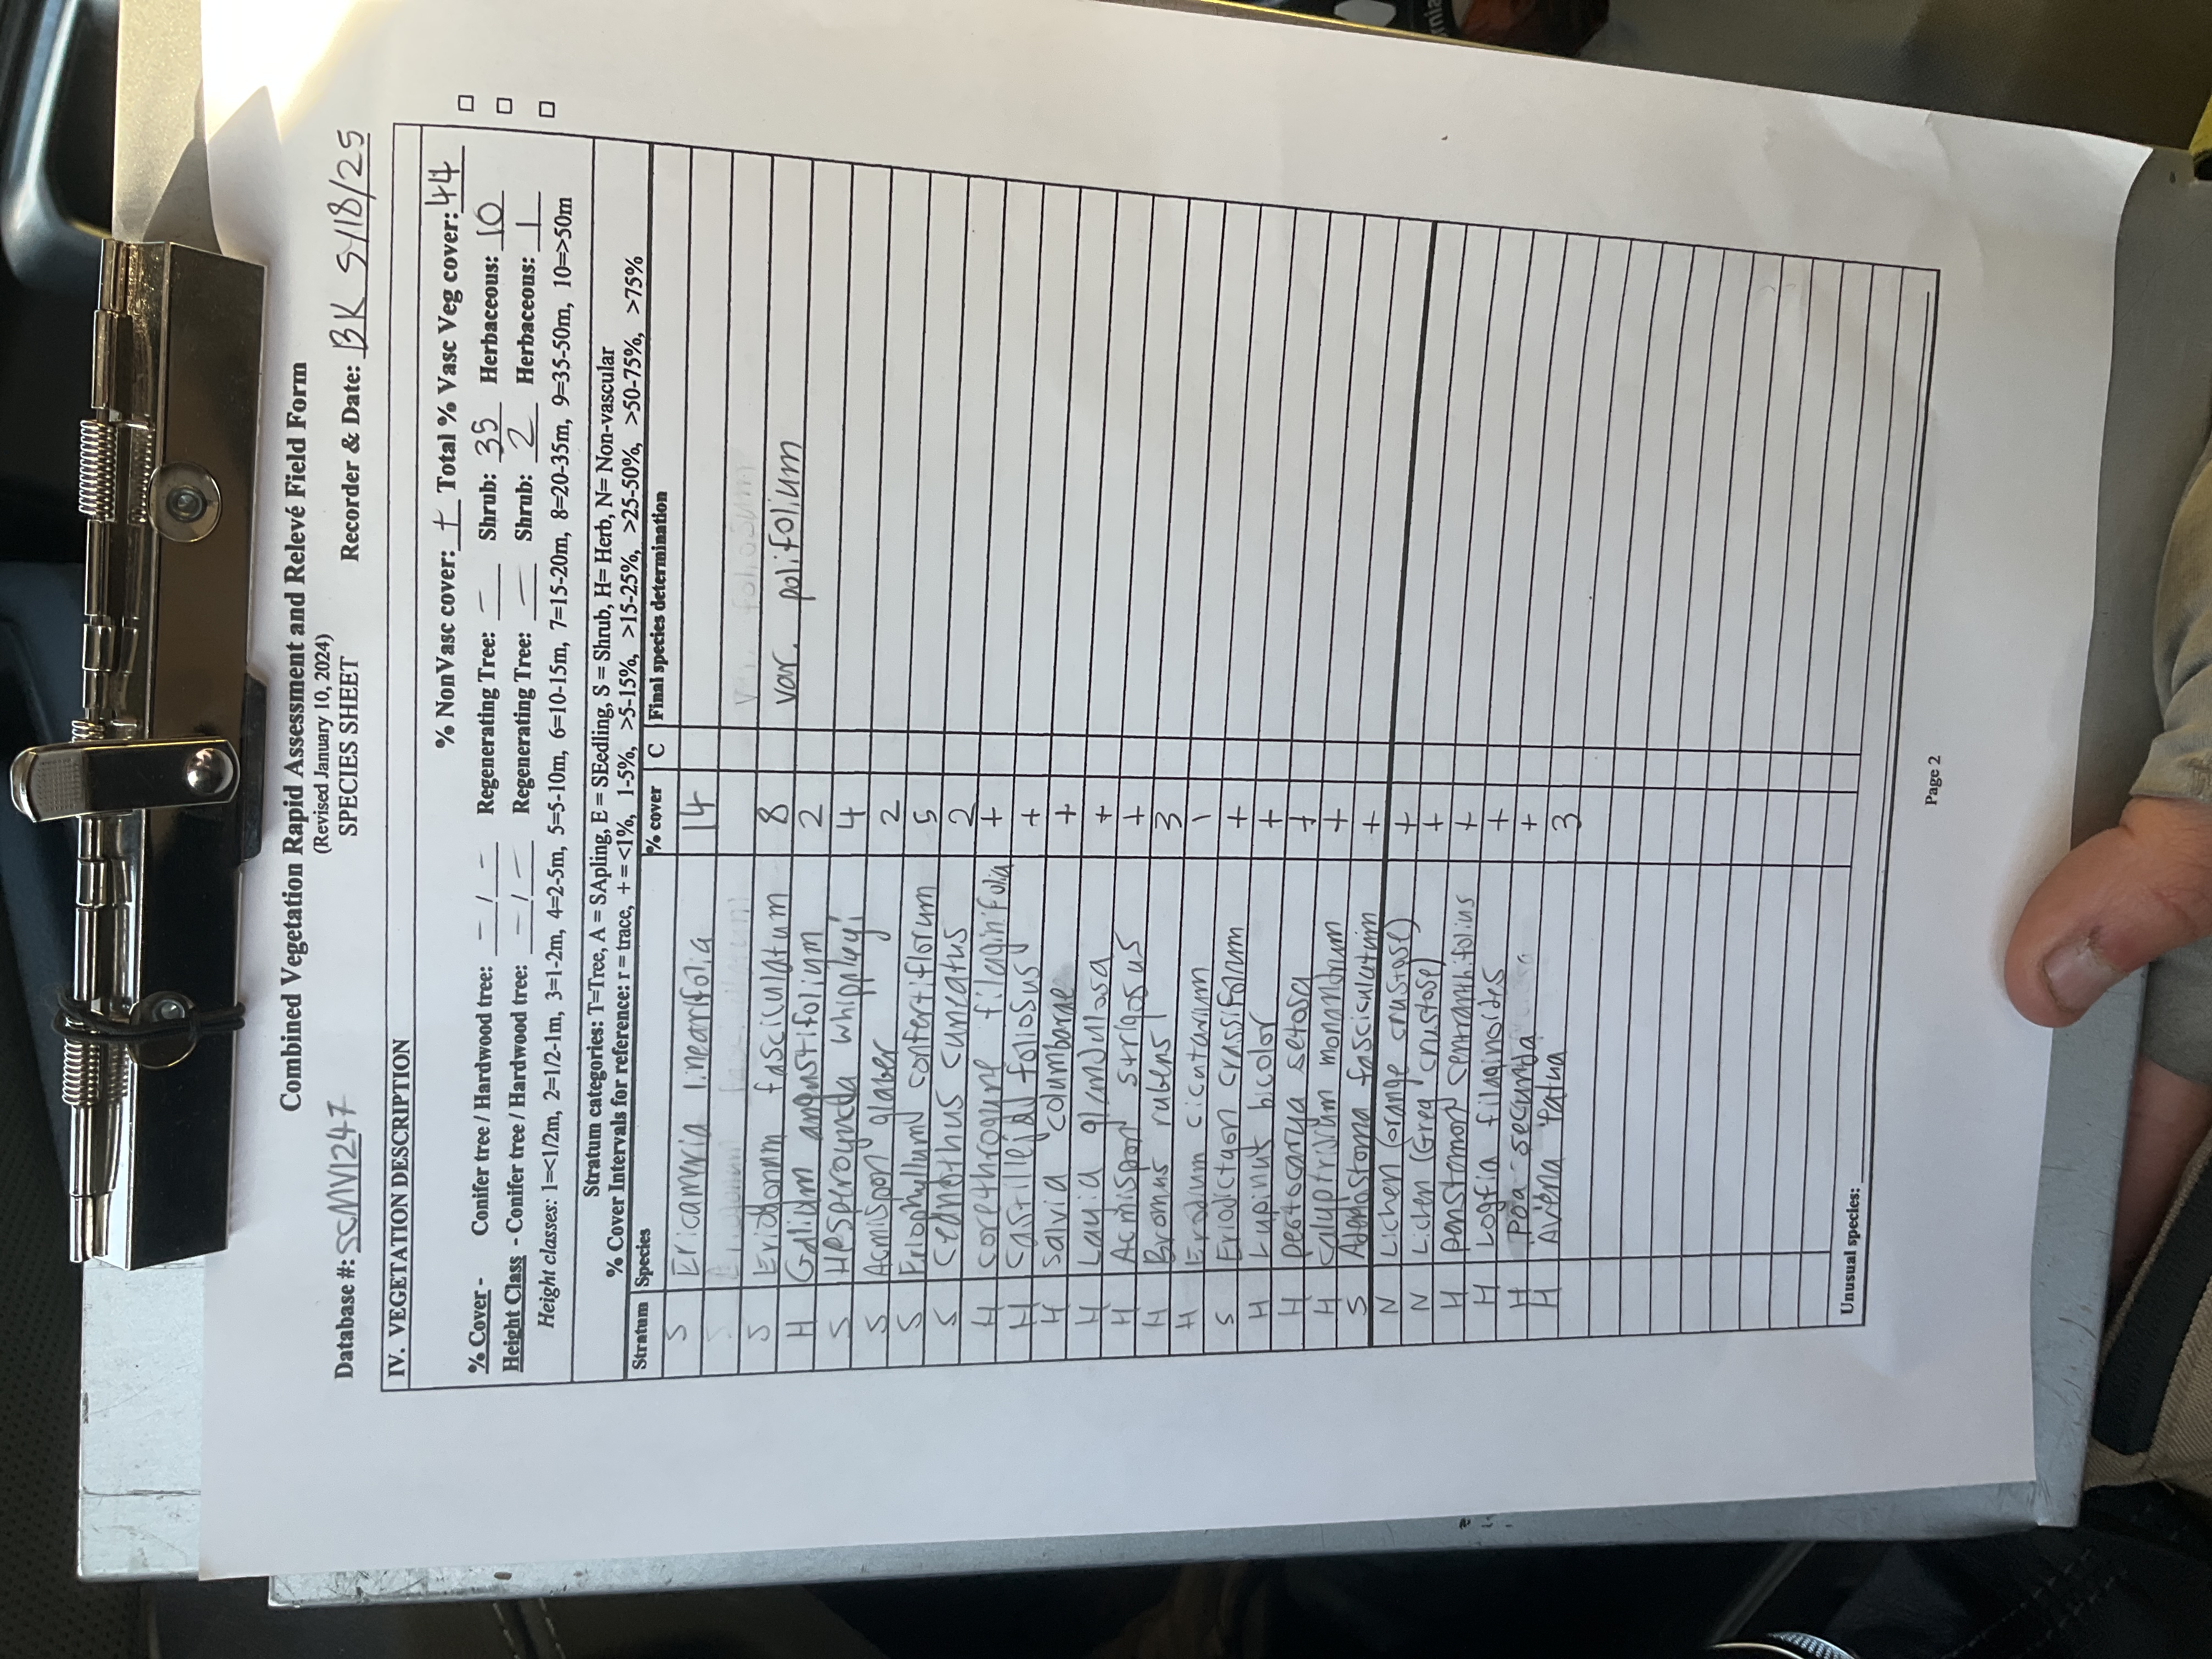 Combined Vegetation Rapid Assessment and Relevé Field Form
(Revised January 10, 2024)
SPECIES SHEET
Database #: SCMV1247 Recorder & Date: BK 5/18/25
IV. VEGETATION DESCRIPTION
% NonVasc cover: + Total % Vasc Veg cover: 44
% Cover - Conifer tree / Hardwood tree: - / - Regenerating Tree: - Shrub: 35 Herbaceous: 10
Height Class - Conifer tree / Hardwood tree: - / - Regenerating Tree: - Shrub: 2 Herbaceous: 1
Height classes: 1=<1/2m, 2=1/2-1m, 3=1-2m, 4=2-5m, 5=5-10m, 6=10-15m, 7=15-20m, 8=20-35m, 9=35-50m, 10=>50m
Stratum categories: T=Tree, A = SApling, E = SEedling, S = Shrub, H= Herb, N= Non-vascular
% Cover Intervals for reference: r = trace, + = <1%, 1-5%, >5-15%, >15-25%, >25-50%, >50-75%, >75%
Stratum Species % cover C Final species determination
S Ericameria linearifolia 14
S Eriogonum fasciculatum 8 var. polifolium
H Galium angustifolium 2
S Hesperoyucca whipplei 4
S Acmispon glaber 2
S Eriophyllum confertiflorum 5
S Ceanothus cuneatus 2
H Corethrogyne filaginifolia +
H Castilleja foliosus +
H Salvia columbarae +
H Layia glandulosa +
H Acmispon strigosus +
H Bromus rubens 3
H Erodium cicutarium 1
S Eriodictyon crassifolium +
H Lupinus bicolor +
H pectocarya setosa +
H Calyptridium monandrum +
S Adenostoma fasciculatum +
N Lichen (orange crustose) +
N Lichen (Grey crustose) +
H penstemon centranthifolius +
H Logfia filaginoides +
H Poa secunda +
H Avena fatua 3
Unusual species:
Page 2